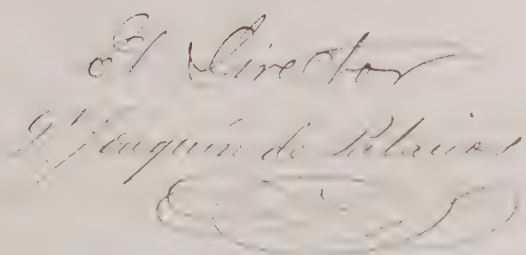 El Director
Joaquín de Palacios